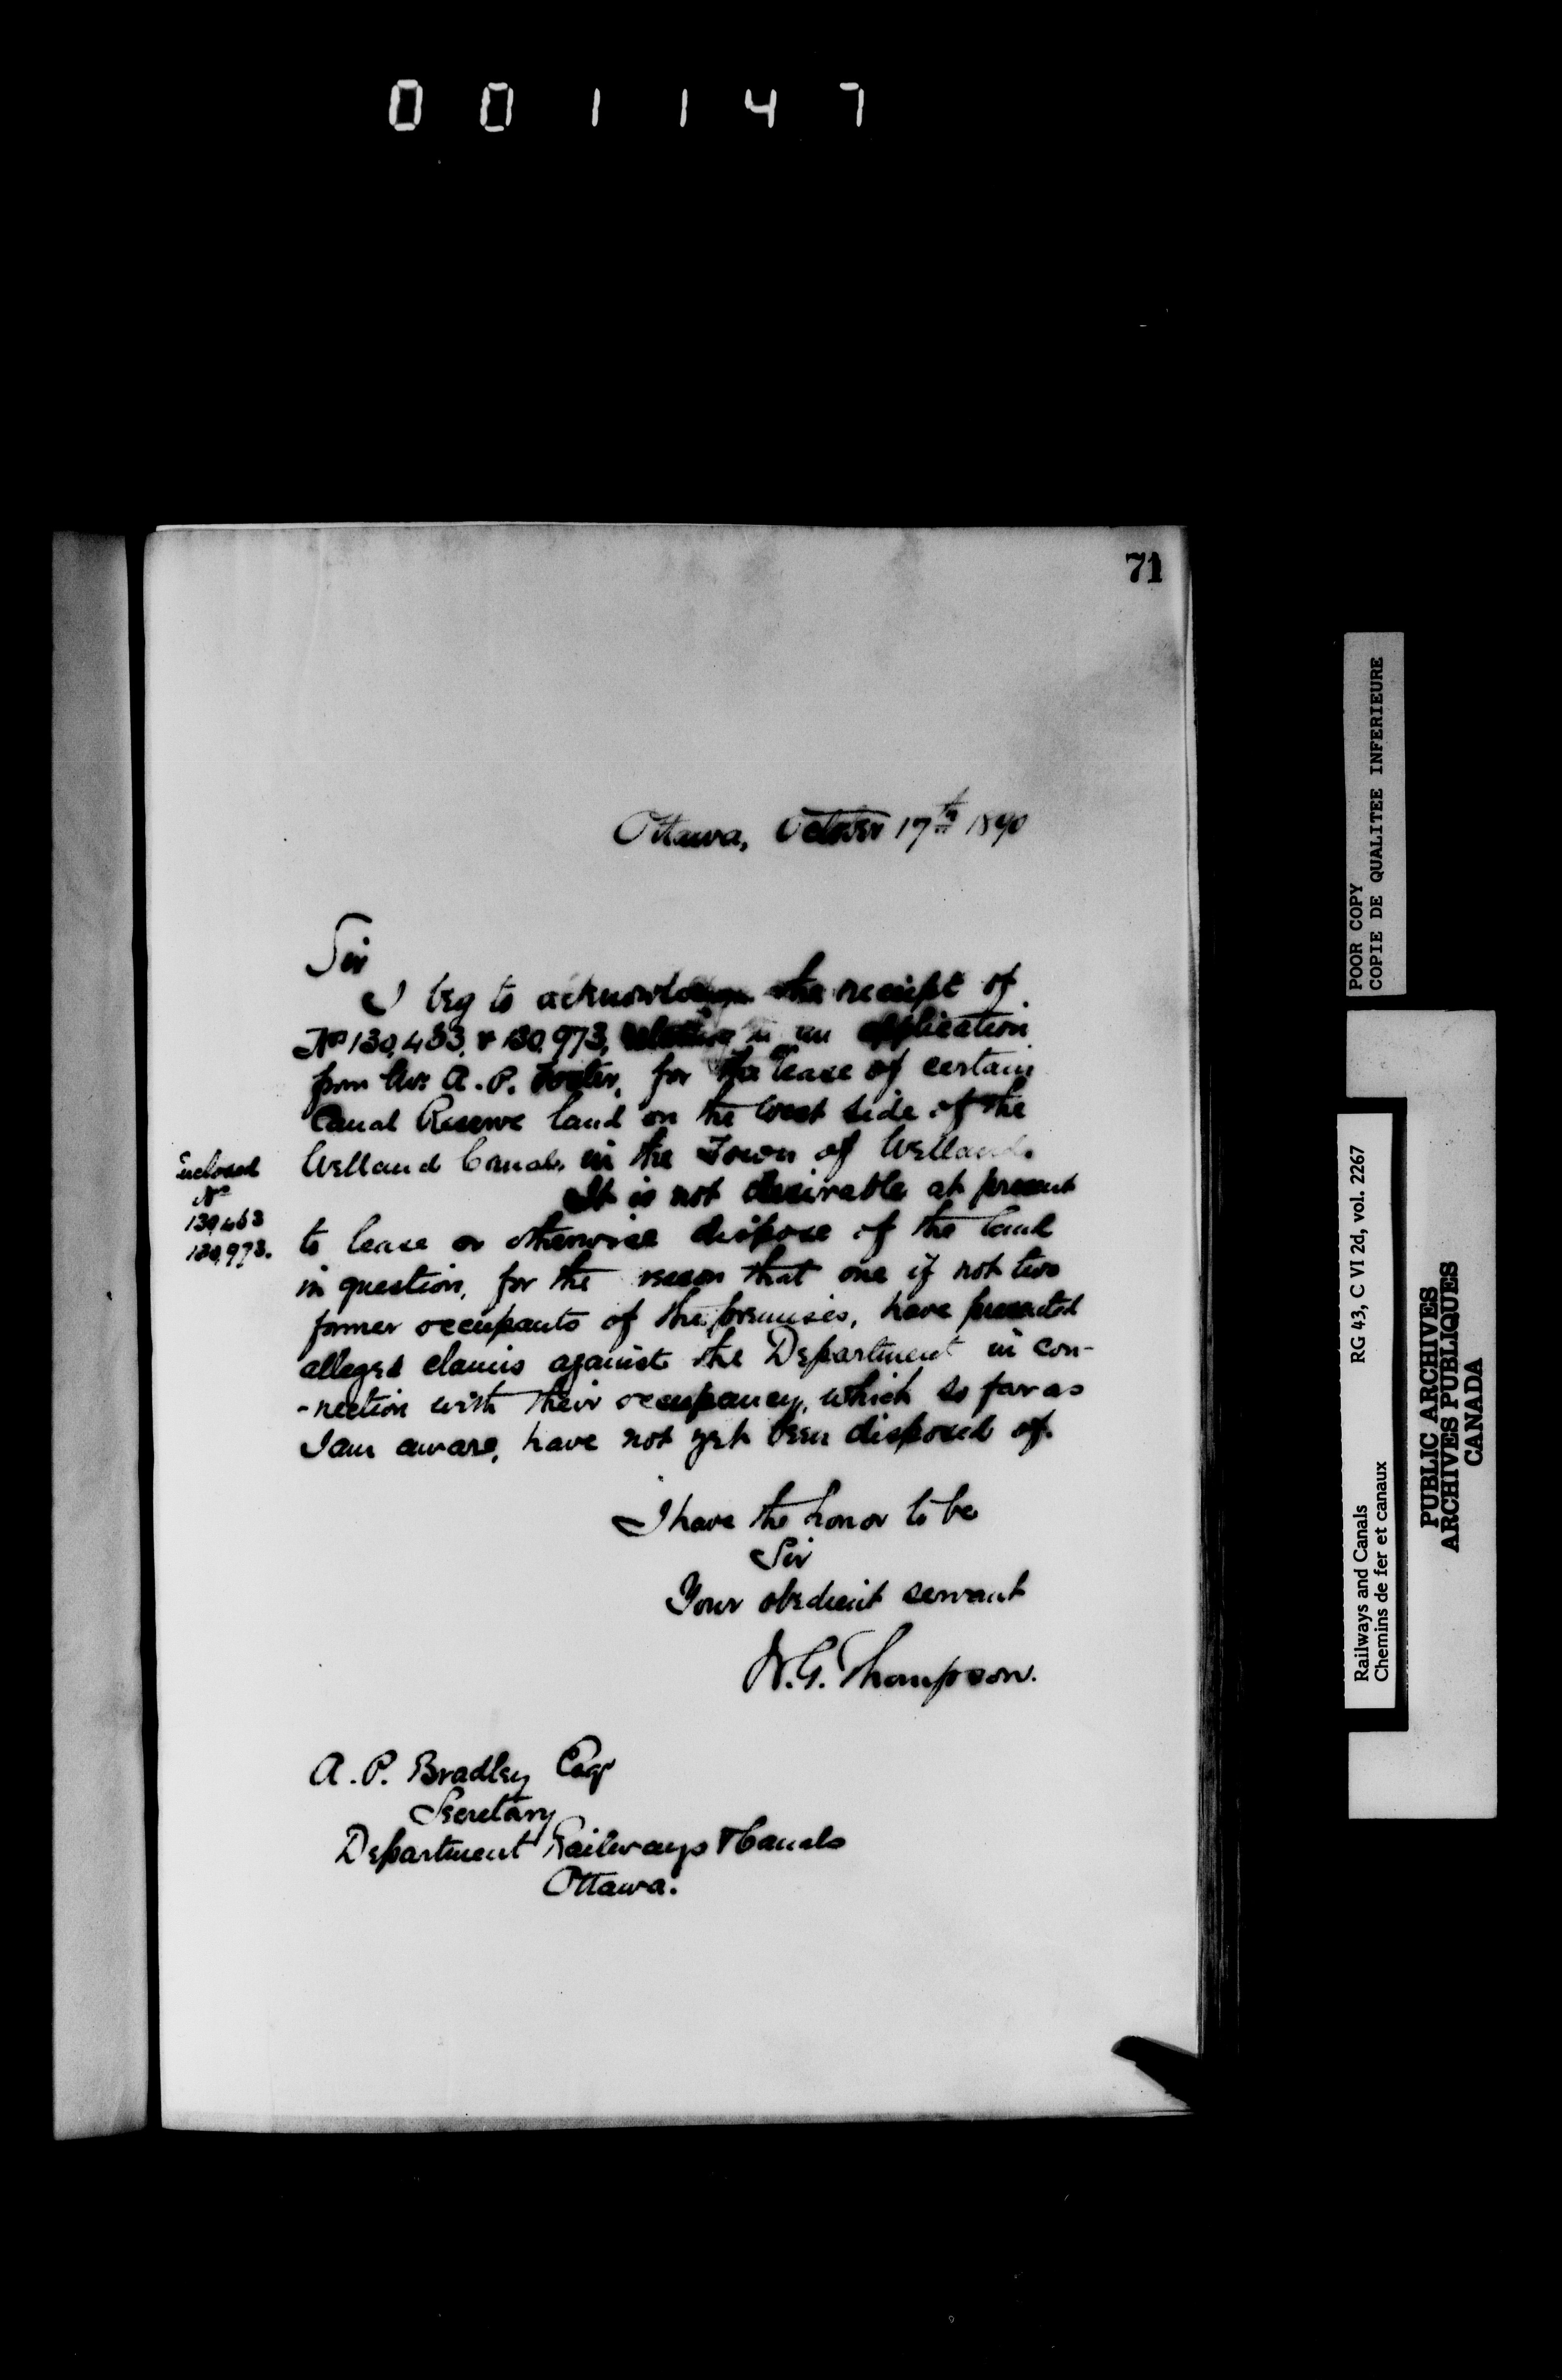 001147
71
Ottawa, October 17th 1890
Sir
I beg to acknowledge the receipt of
No 130,463, & 130,973, relative to an application
from Mr. A. P. Foster, for the lease of certain
Canal Reserve land on the west side of the
Welland Canal, in the Town of Welland.
It is not desirable at present
to lease or otherwise dispose of the land
in question, for the reason that one if not two
former occupants of the premises, have presented
alleged claims against the Department in con-
-nection with their occupancy, which so far as
I am aware, have not yet been disposed of.
Enclosed
No
130,463
130,973.
I have the honor to be
Sir
Your obedient servant
W. G. Thompson.
A. P. Bradley Esqr
Secretary
Department Railways & Canals
Ottawa.
POOR COPY
COPIE DE QUALITEE INFERIEURE
Railways and Canals RG 43, C VI 2d, vol. 2267
Chemins de fer et canaux
PUBLIC ARCHIVES
ARCHIVES PUBLIQUES
CANADA